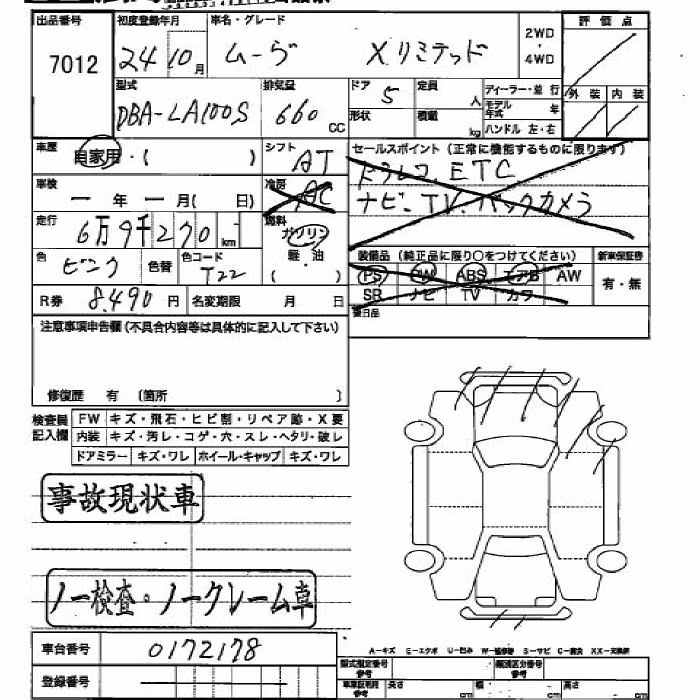 出品番号 初度登録年月 車名・グレード 2WD・4WD 評価点
7012 24 10月 ムーヴ Xリミテッド
型式 排気量 ドア 5 定員 人 ディーラー・並行 外装 内装
DBA-LA100S 660 CC 形状 積載 kg モデル年式 年
ハンドル 左・右
車歴 自家用・( ) シフト AT セールスポイント (正常に機能するものに限ります)
車検 ー年ー月( 日) 冷房 AC ドラレコ ETC
ナビ・TV・バックカメラ
走行 6万9千270km 燃料 ガソリン
軽・油
( )
色 ピンク 色替 色コード T22 装備品 (純正品に限り〇をつけてください) 新車保証書
PS PW ABS エアB AW 有・無
SR ナビ TV カワ
R券 8,490円 名変期限 月 日 後日品
注意事項申告欄 (不具合内容等は具体的に記入して下さい)
修復歴 有 (箇所 )
検査員記入欄 FW キズ・飛石・ヒビ割・リペア跡・X要
内装 キズ・汚レ・コゲ・穴・スレ・ヘタリ・破レ
ドアミラー キズ・ワレ ホイール・キャップ キズ・ワレ
事故現状車
ノー検査・ノークレーム車
車台番号 0172178
A-キズ E-エクボ U-凹み W-補修跡 S-サビ C-腐蝕 XX-交換済
登録番号
型式指定番号 参考 類別区分番号 参考
車車証明用 参考 長さ cm 幅 cm 高さ cm